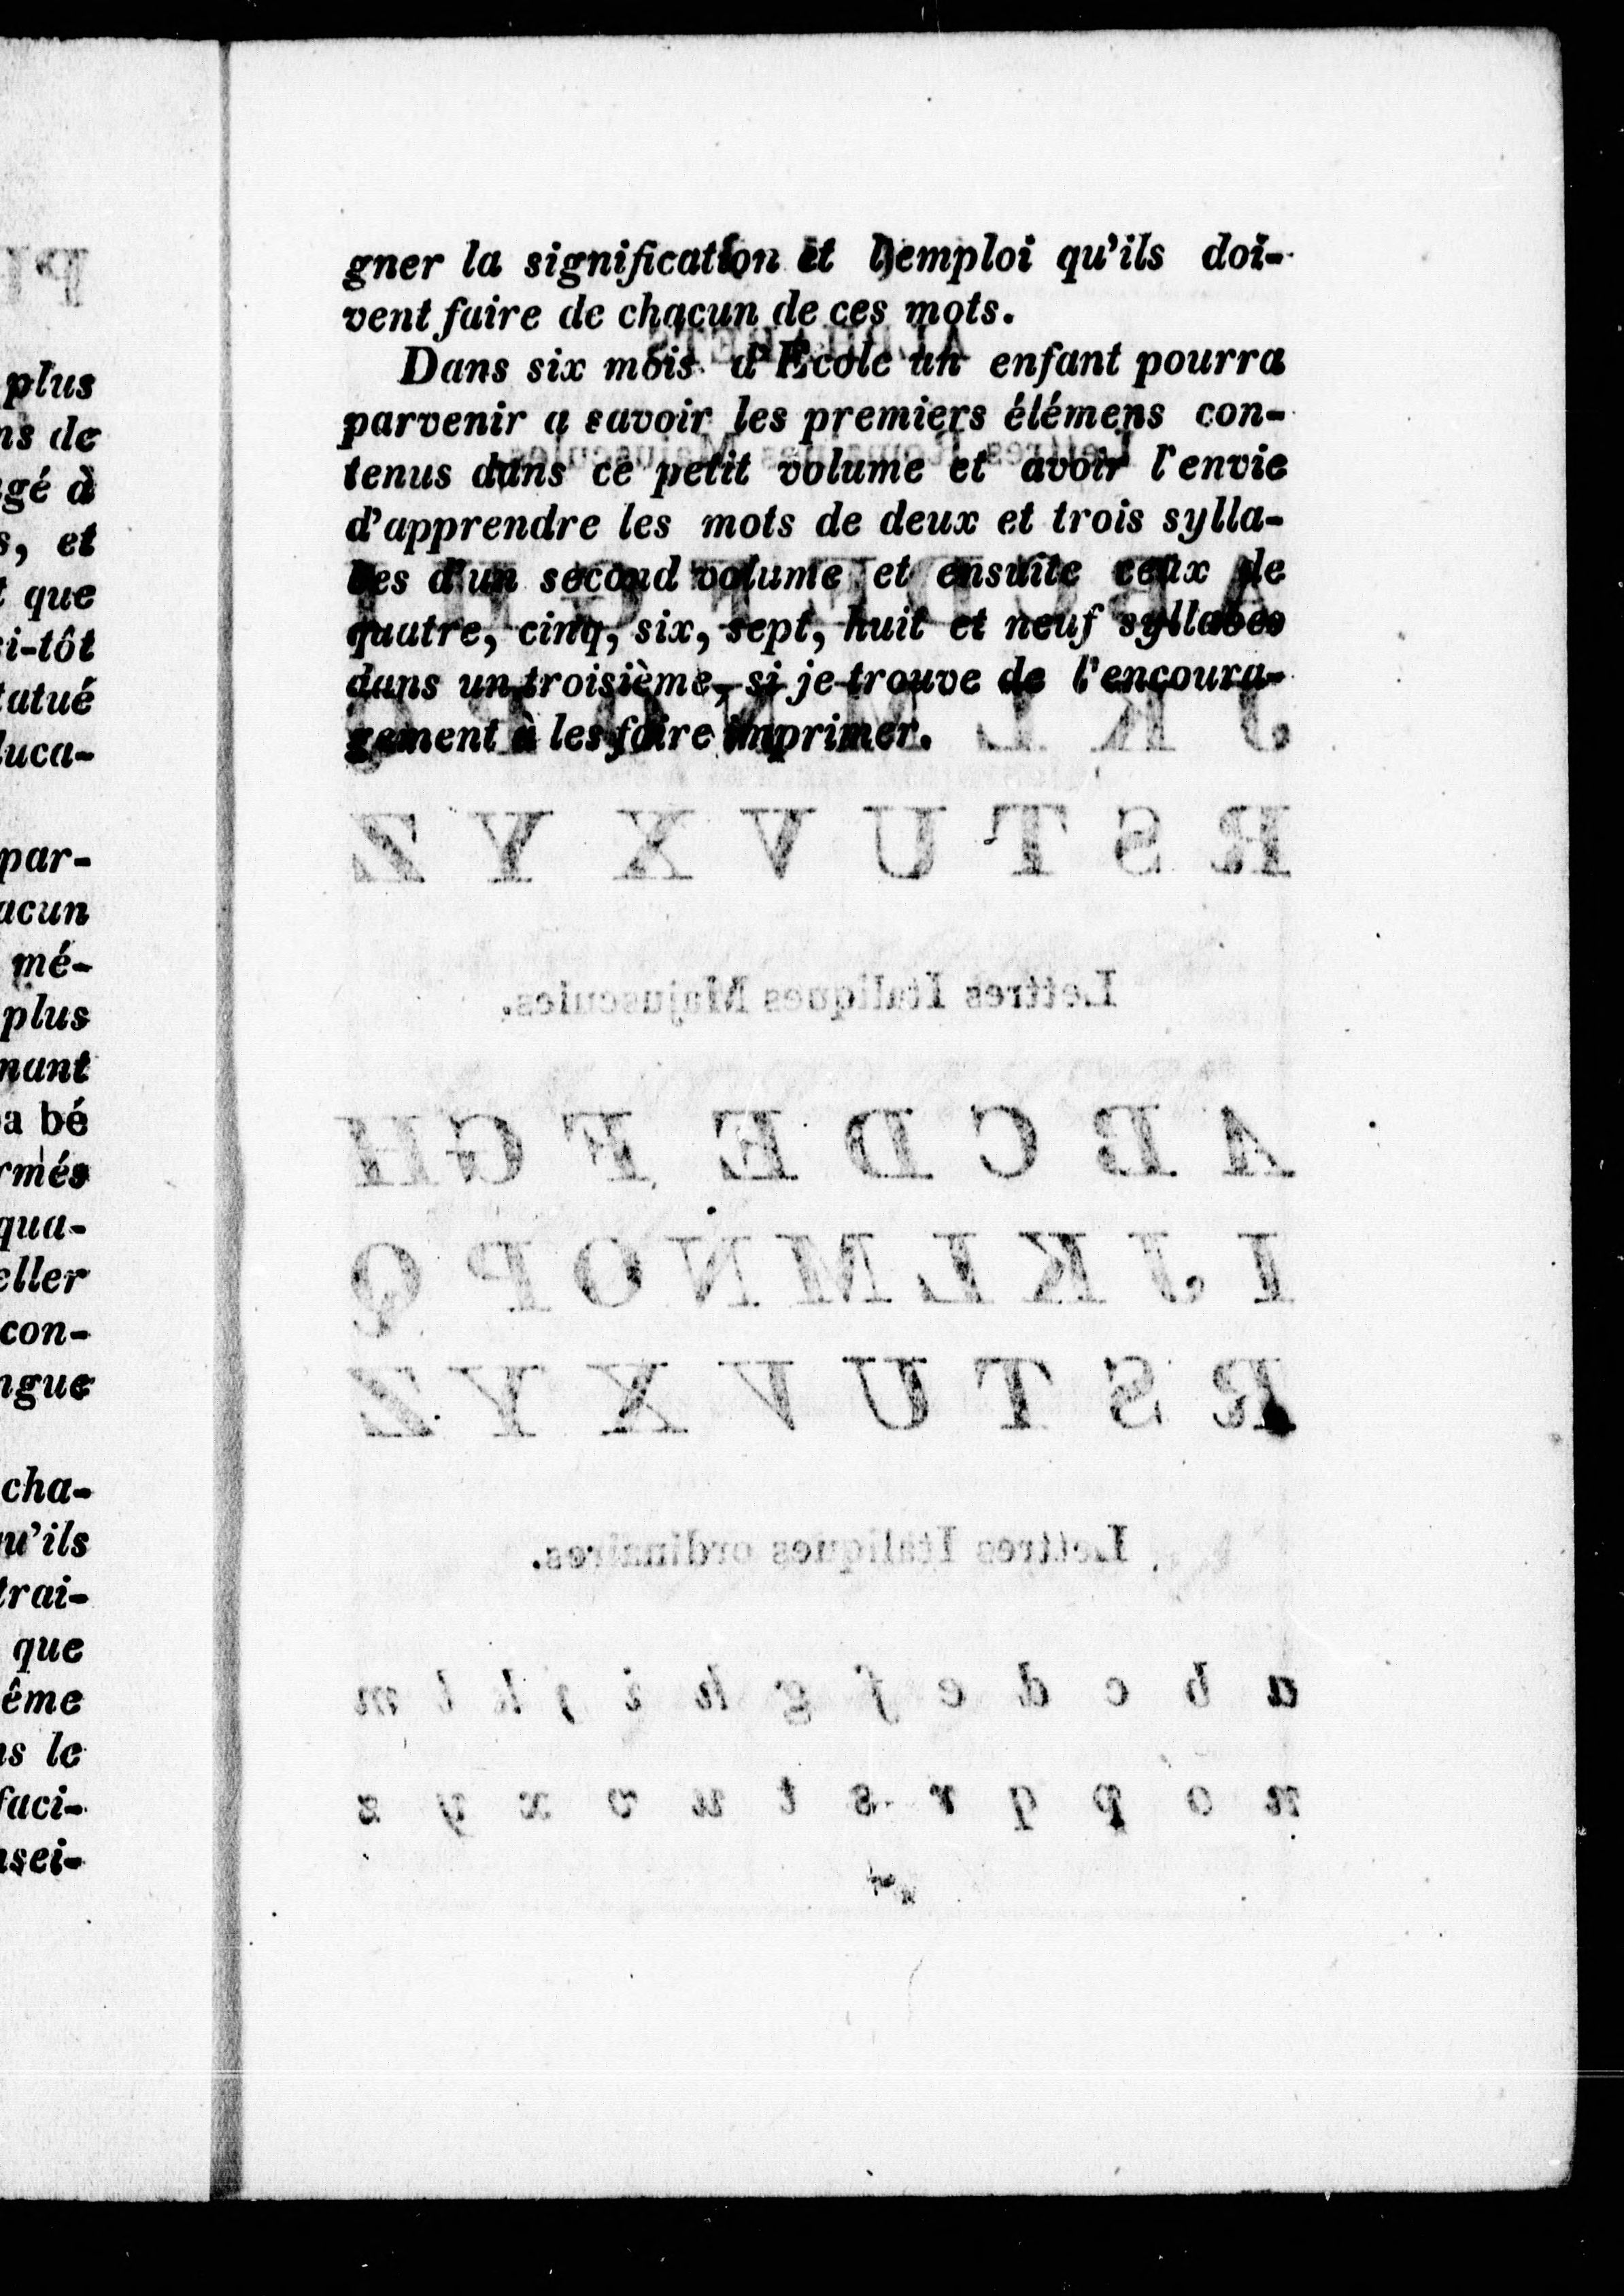 gner la signification et l'emploi qu'ils doi-
vent faire de chacun de ces mots.
Dans six mois d'Ecole un enfant pourra
parvenir a savoir les premiers élémens con-
tenus dans ce petit volume et avoir l'envie
d'apprendre les mots de deux et trois sylla-
bes d'un second volume et ensuite ceux de
quatre, cinq, six, sept, huit et neuf syllabes
dans un troisième, si je trouve de l'encoura-
gement à les faire imprimer.
plus
ns de
gé à
s, et
que
i-tôt
tatué
luca-
par-
acun
mé-
plus
nant
a bé
rmés
qua-
eller
con-
ngue
cha-
u'ils
trai-
que
ême
ns le
faci-
nsei-
R S T U V X Y Z
Lettres Italiques Majuscules.
A B C D E F G H
I J K L M N O P Q
R S T U V X Y Z
Lettres Italiques ordinaires.
a b c d e f g h i j k l m
n o p q r s t u v x y z